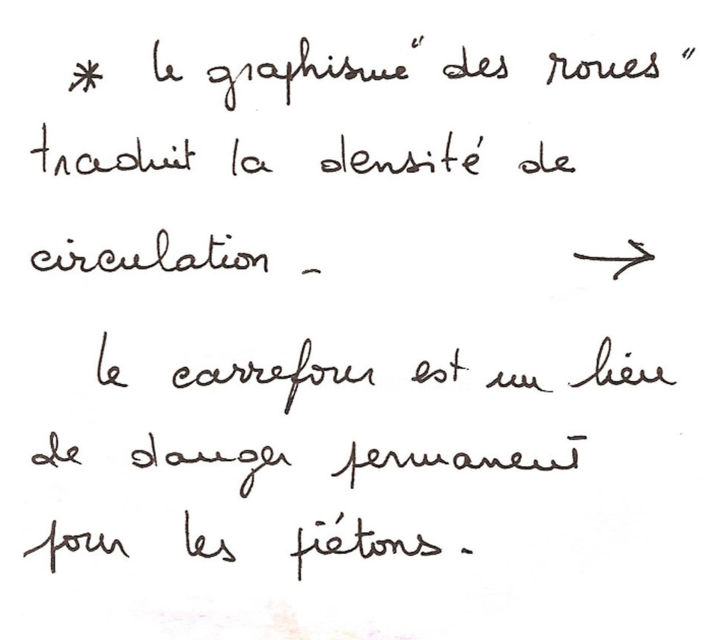 * le graphisme "des roues"
traduit la densité de
circulation - →
le carrefour est un lieu
de danger permanent
pour les piétons.